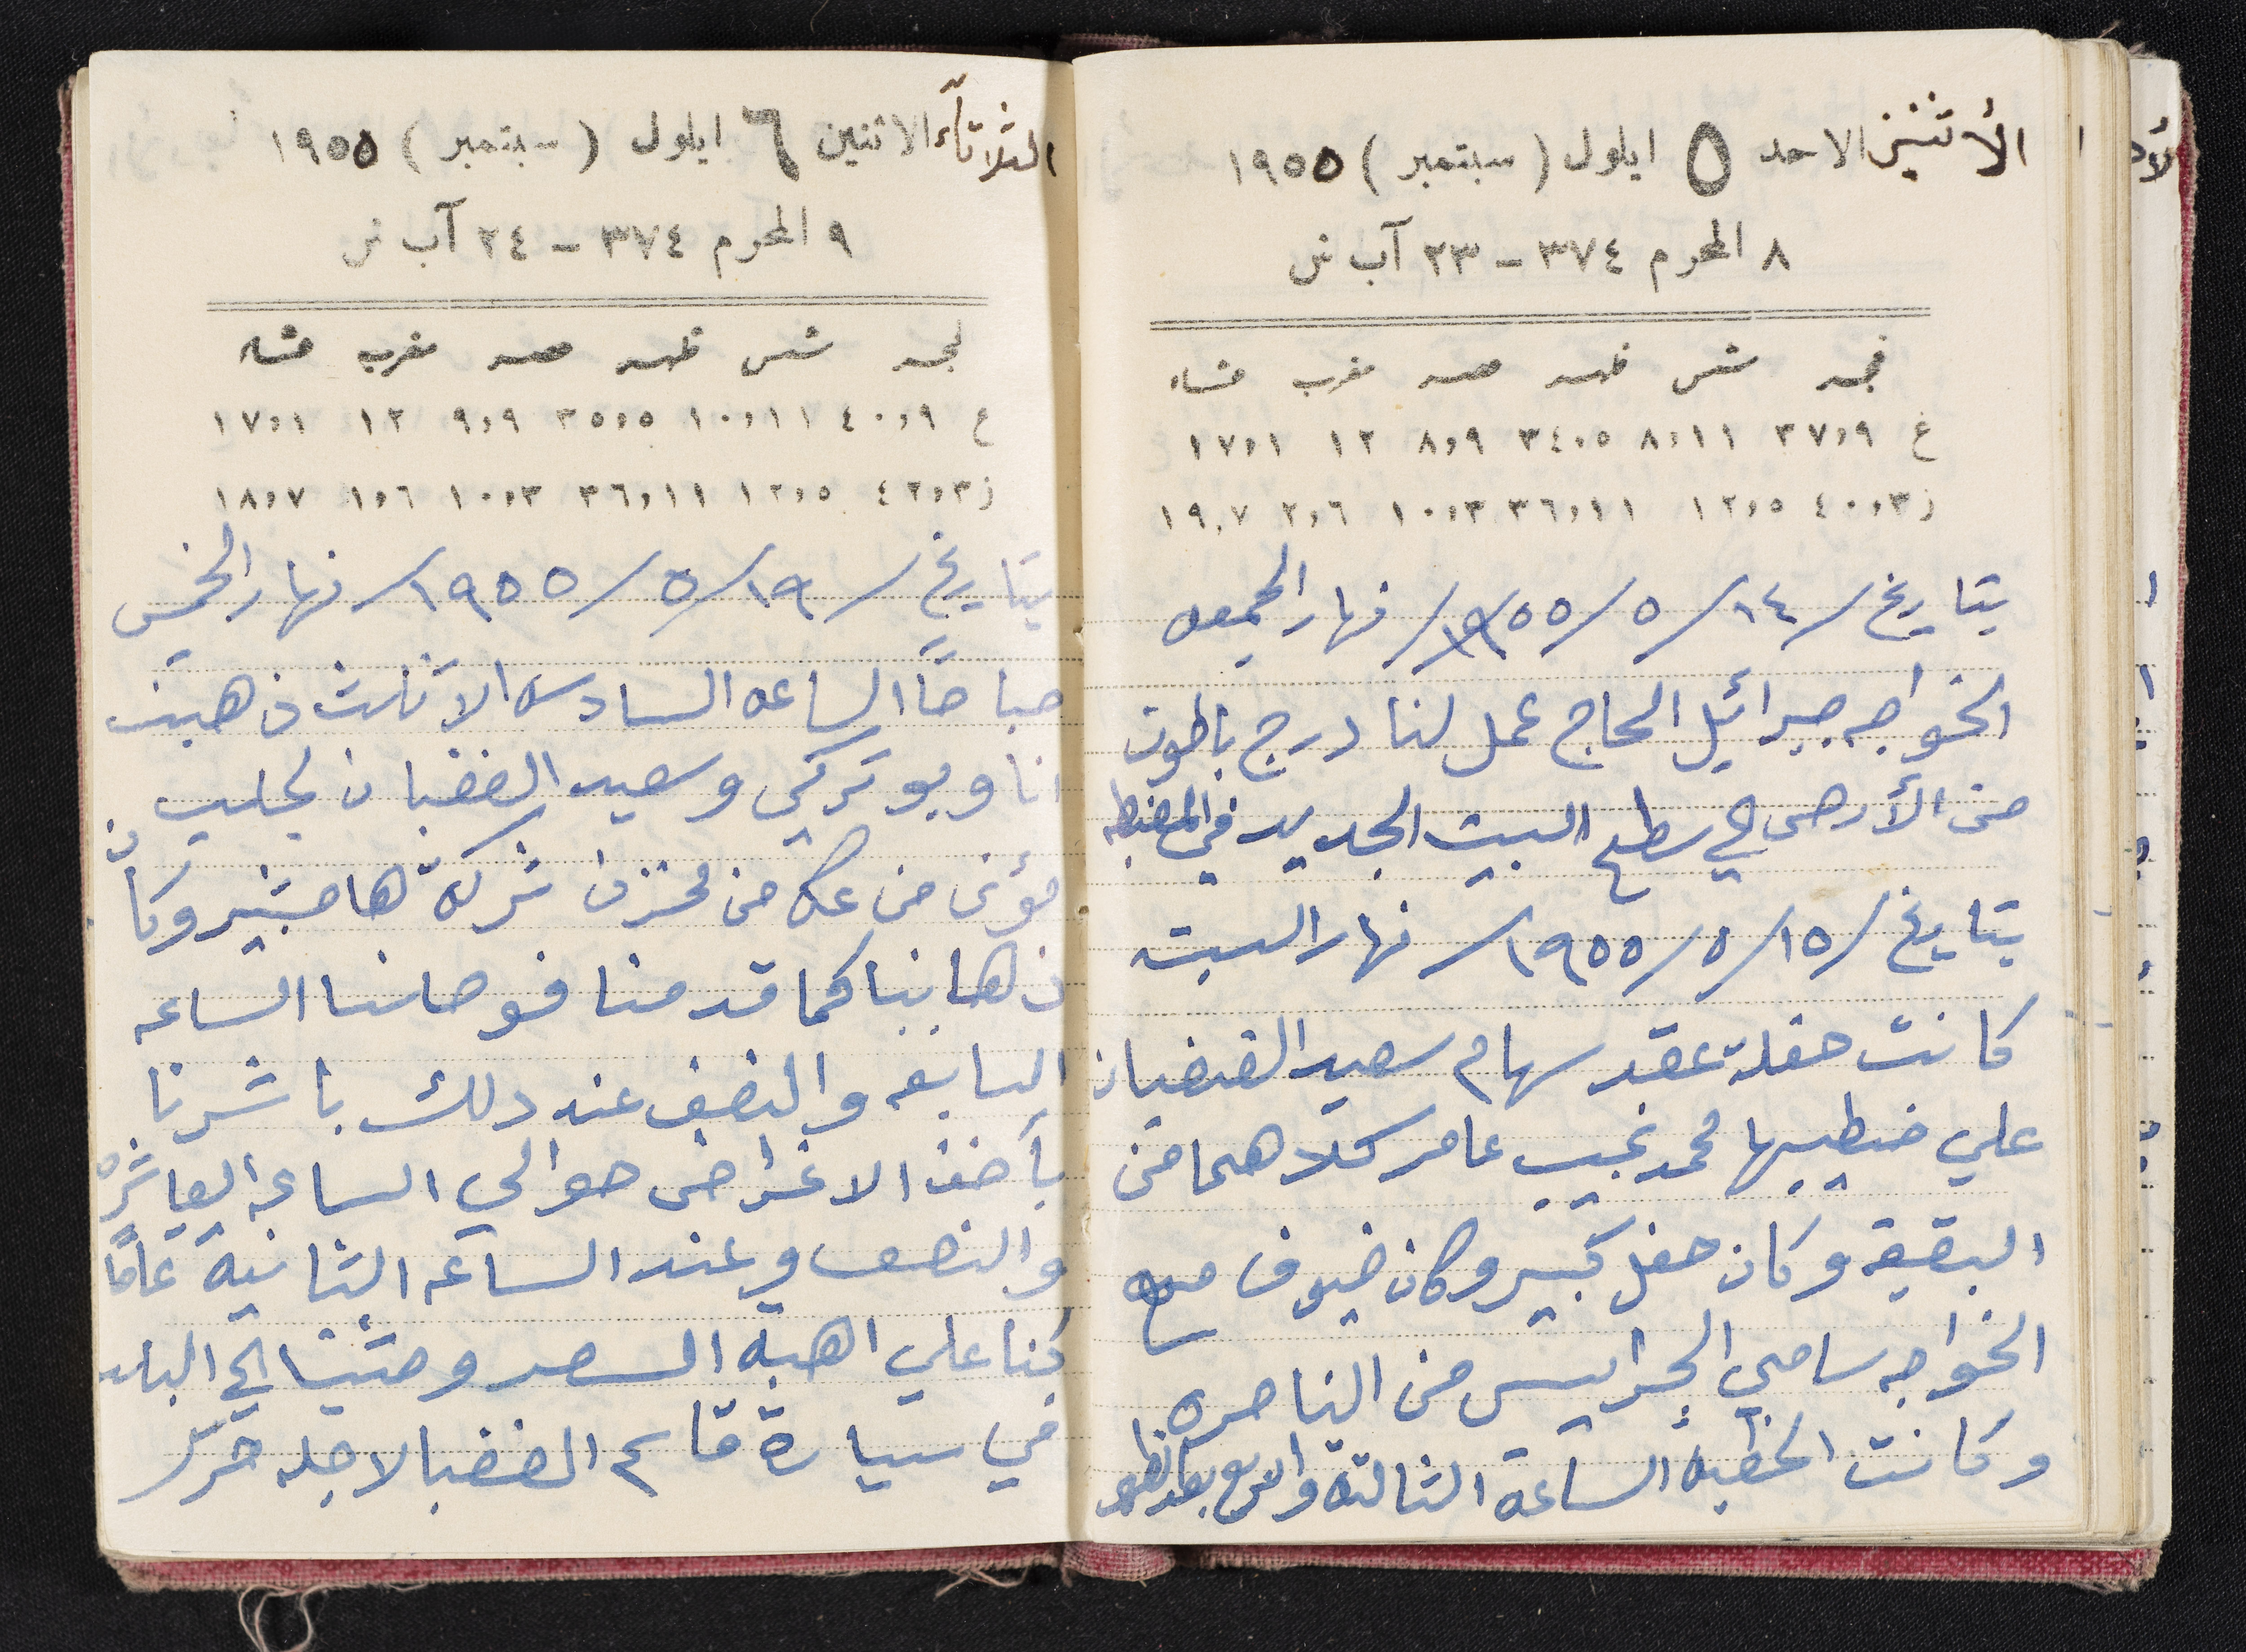 الأثنين الاحد ٥ ايلول (سبتمبر) ١٩٥٥
٨ المحرم ٣٧٤ - ٢٣ آب ش
فجر شمس ظهر عصر مغرب عشاء
ع ٣٧،٩ ٨،١١ ٣٤،٥ ٨،٩ ١٢ ١٧،١
ز ٤٠،٣ ١٢،٥ ٣٦،١١ ١٠،٣ ٢،٦ ١٩،٧
بتاريخ /١٤/٥/١٩٥٥/ نهار الجمعه
الخواجه جبرائيل الحاج عمل لنا درج باطون
من الأرض الي سطح البيت الجديد في
بتاريخ /١٥/٥/١٩٥٥/ نهار السبت
كانت حفلة عقد سهام سعيد الغضبان
علي خطيبها محمد نجيب عامر كلاهما من
البقيعة وكان حفل كبير وكان ضيوف معه
الخواجه سامي الجرايسي من الناصره
وكانت الخطبه الساعة الثالثة والربع بعد الظهر
الثلاثآء الاثنين ٦ ايلول (سبتمبر) ١٩٥٥
٩ المحرم ٣٧٤ - ٢٤ آب ش
فجر شمس ظهر عصر مغرب عشاء
ع ٤٠،٩ ١٠،١١ ٣٥،٥ ٩،٩ ١٢ ١٧،١
ز ٤٢،٣ ١٢،٥ ٣٦،١١ ١٠،٣ ١،٦ ١٨،٧
بتاريخ /١٩/٥/١٩٥٥/ نهار الخمس
صباحاً الساعه السادسه الا ثلث ذهبت
انا وبو تركي وسعيد الغضبان لجلب
مؤن من عكا من مخزن شركة هامشبير وكان
ذهابنا كما قدمنا فوصلنا الساعه
السابعه والنصف عند ذلك باشرنا
بأخذ الاغراض حوالي الساعه العاشره
والنصف وعند الساعه الثانية تماماً
كنا علي اهبة السفر ومشينا الي البلد
في سيارة قاسم الغضبا لاجله حرر